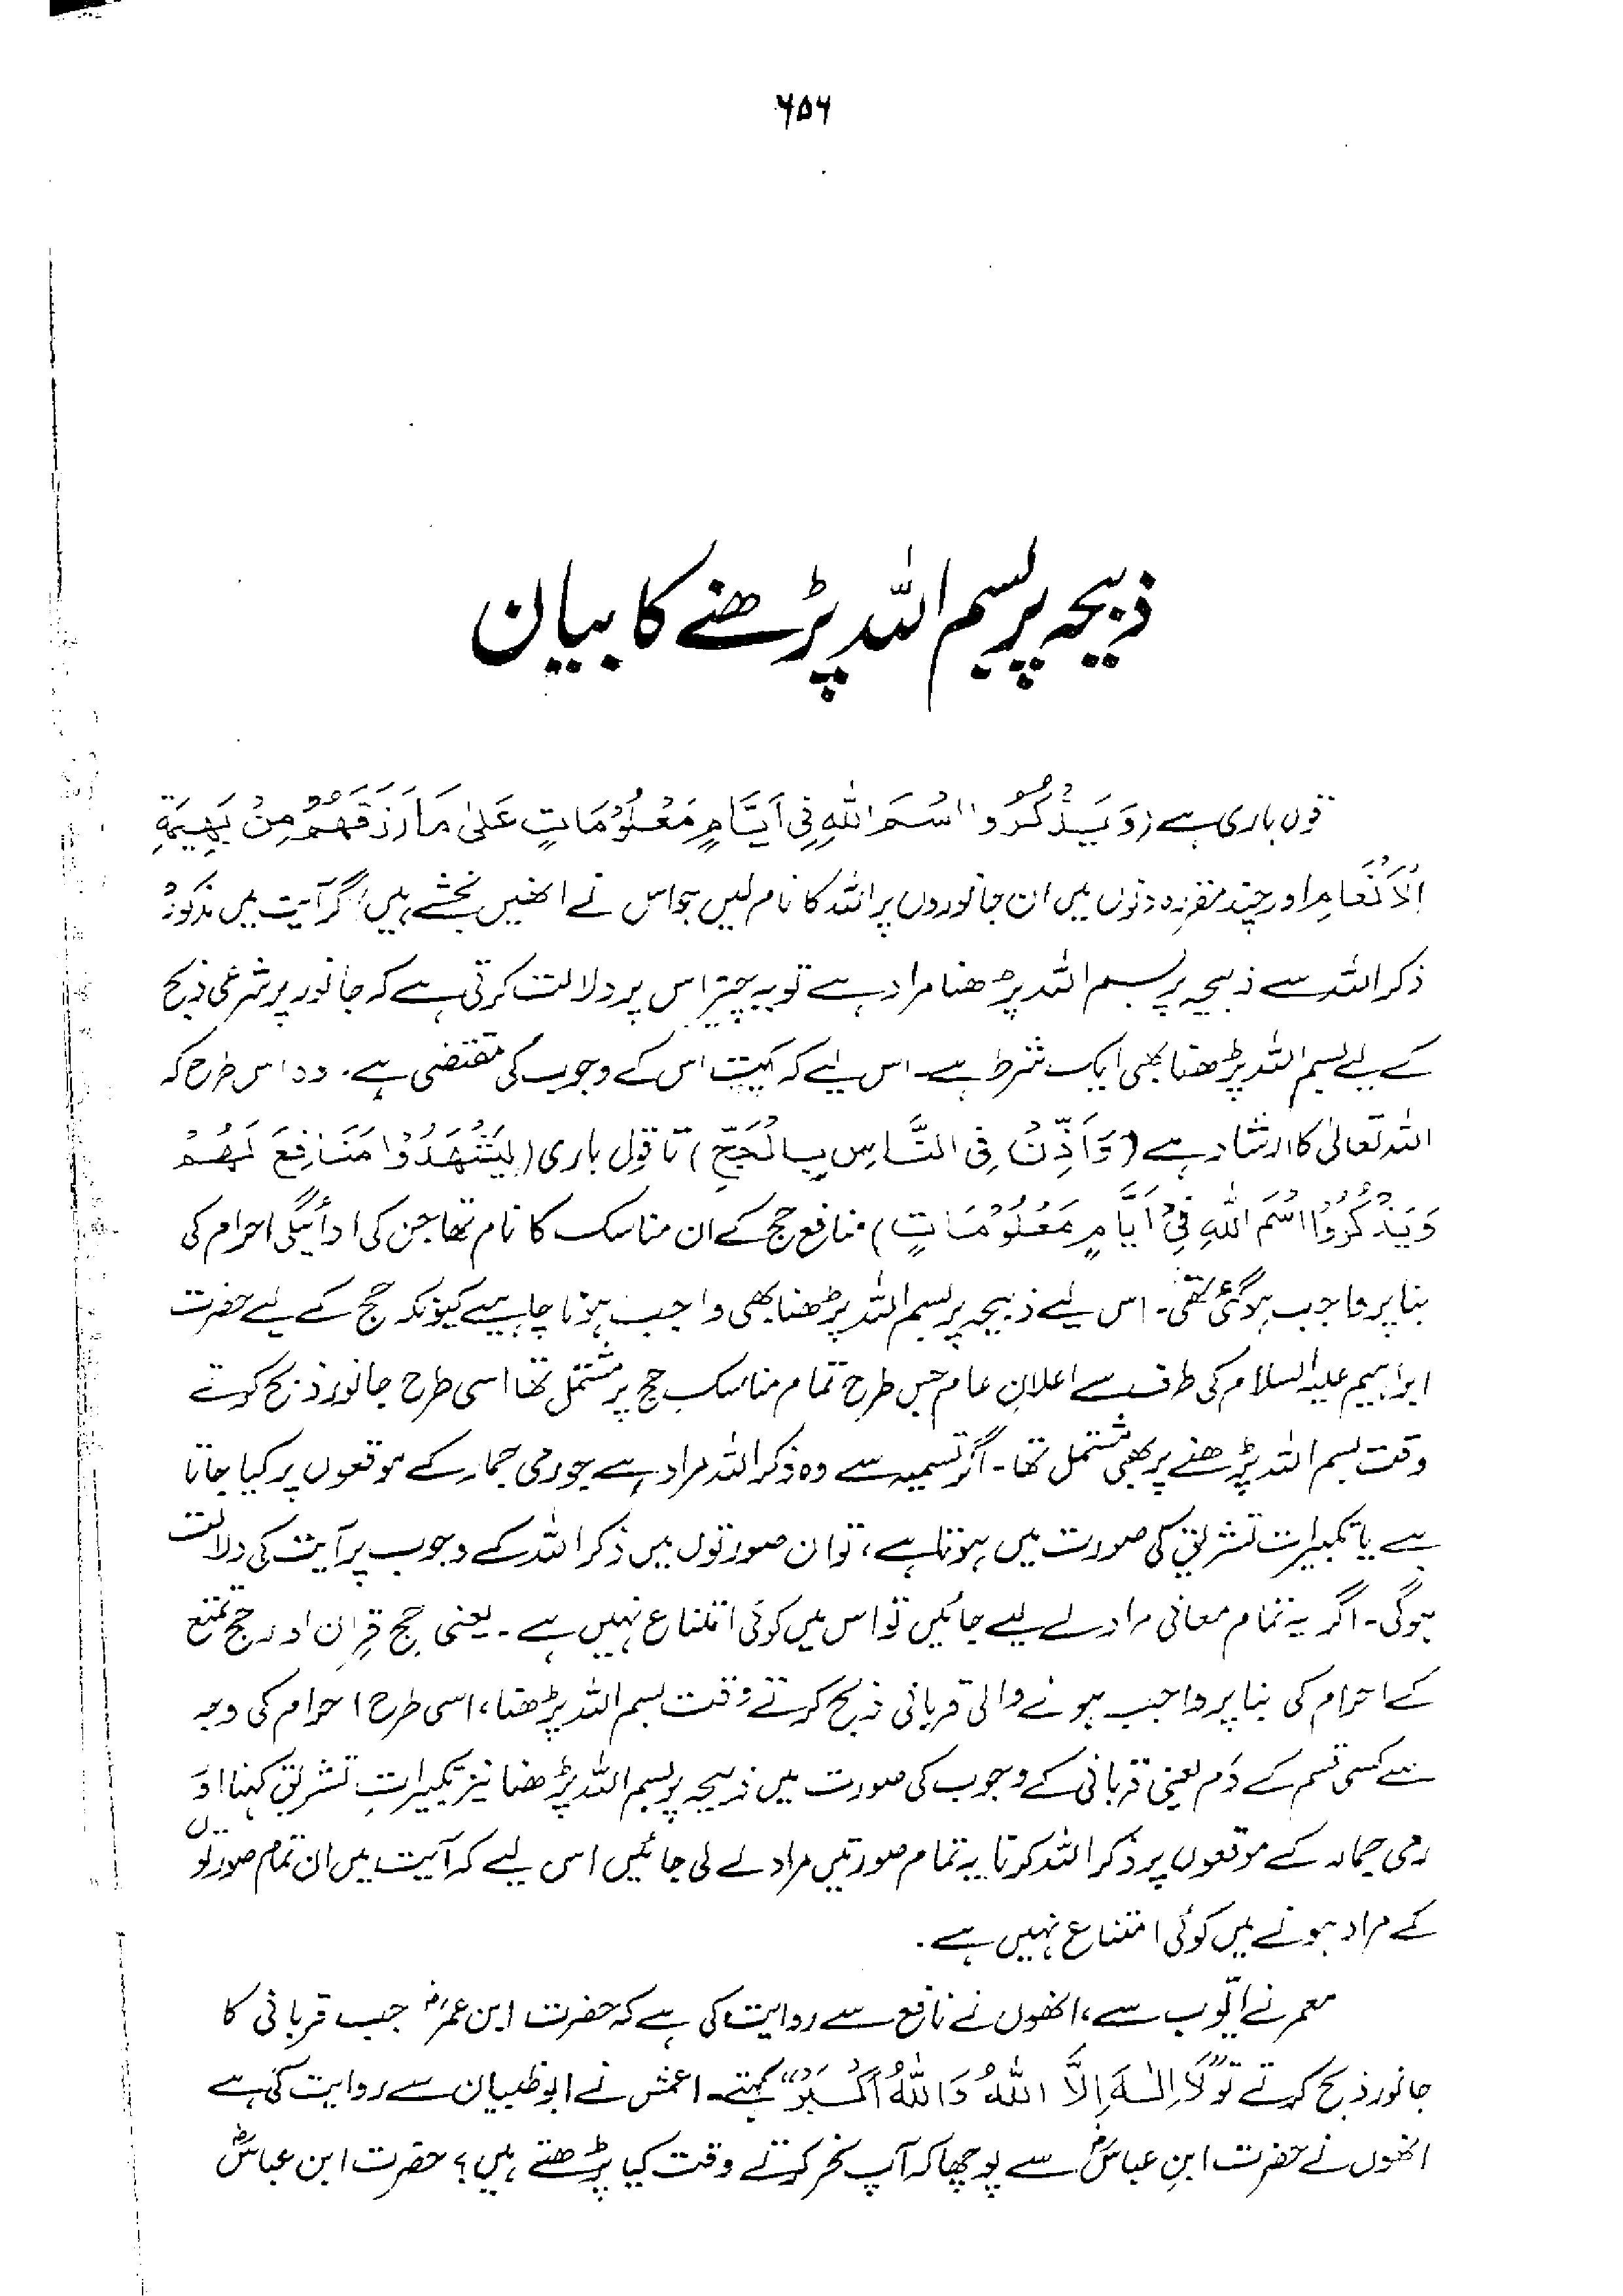 ۶۵۶
ذبیحہ پر بسم اللہ پڑھنے کا بیان
قول باری ہے (وَيَذْكُرُوا اسْمَ اللّٰهِ فِي اَيَّامٍ مَّعْلُوْمَاتٍ عَلٰى مَا رَزَقَهُمْ مِنْ بَهِيْمَةِ
الْاَنْعَامِ اور چند مقررہ دنوں میں ان جانوروں پر اللہ کا نام لیں جو اس نے انھیں بخشے ہیں) اگر آیت میں مذکورہ
ذکر اللہ سے ذبیحہ پر بسم اللہ پڑھنا مراد ہے تو یہ چیز اس پر دلالت کرتی ہے کہ جانور پر شرعی ذبح
کے لیے بسم اللہ پڑھنا بھی ایک شرط ہے۔ اس لیے کہ آیت اس کے وجوب کی مقتضی ہے۔ وہ اس طرح کہ
اللہ تعالیٰ کا ارشاد ہے (وَاَذِّنْ فِی النَّاسِ بِالْحَجِّ) تا قول باری (لِيَشْهَدُوْا مَنَافِعَ لَهُمْ
وَيَذْكُرُوا اسْمَ اللّٰهِ فِيْ اَيَّامٍ مَعْلُوْمَاتٍ) منافع حج کے ان مناسک کا نام تھا جن کی ادائیگی احرام کی
بنا پر واجب ہوگئی تھی۔ اس لیے ذبیحہ پر بسم اللہ پڑھنا بھی واجب ہونا چاہیے کیونکہ حج کے لیے حضرت
ابراہیم علیہ السلام کی طرف سے اعلانِ عام جس طرح تمام مناسکِ حج پر مشتمل تھا اسی طرح جانور ذبح کرتے
وقت بسم اللہ پڑھنے پر بھی مشتمل تھا۔ اگر تسمیہ سے وہ ذکر اللہ مراد ہے جو رمی جمار کے موقعوں پر کیا جاتا
ہے یا تکبیراتِ تشریق کی صورت میں ہوتا ہے، تو ان صورتوں میں ذکر اللہ کے وجوب پر آیت کی دلالت
ہوگی۔ اگر یہ تمام معانی مراد لے لیے جائیں تو اس میں کوئی امتناع نہیں ہے۔ یعنی حج قِران اور حج تمتع
کے احرام کی بنا پر واجب ہونے والی قربانی ذبح کرتے وقت بسم اللہ پڑھنا، اسی طرح احرام کی وجہ
سے کسی قسم کے دَم یعنی قربانی کے وجوب کی صورت میں ذبیحہ پر بسم اللہ پڑھنا نیز تکبیراتِ تشریق کہنا اور
رمی جمار کے موقعوں پر ذکر اللہ کرنا یہ تمام صورتیں مراد لے لی جائیں اس لیے کہ آیت میں ان تمام صورتوں
کے مراد ہونے میں کوئی امتناع نہیں ہے۔
معمر نے ایوب سے، انھوں نے نافع سے روایت کی ہے کہ حضرت ابن عمرؓ جب قربانی کا
جانور ذبح کرتے تو "لَا اِلٰهَ اِلَّا اللّٰهُ وَاللّٰهُ اَكْبَرُ" کہتے۔ اعمش نے ابوظبیان سے روایت کی ہے
انھوں نے حضرت ابنِ عباسؓ سے پوچھا کہ آپ نحر کرتے وقت کیا پڑھتے ہیں؟ حضرت ابن عباسؓ